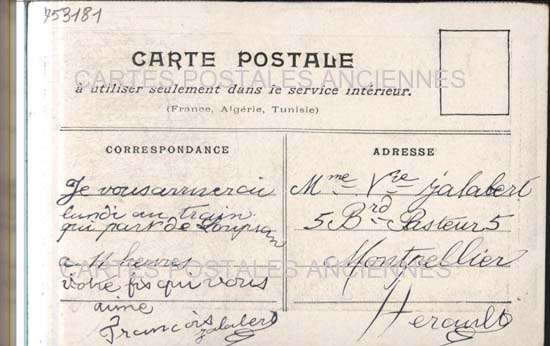 753181
CARTE POSTALE
CARTES POSTALES ANCIENNES
à utiliser seulement dans le service intérieur.
(France, Algérie, Tunisie)
CORRESPONDANCE
Je vous arriverai
lundi au train
qui part de
a 11 heures
votre fis qui vous
aime
François Jalabert
ADRESSE
Mme Vve Jalabert
5 Brd Pasteur 5
Montpellier
Herault
CARTES POSTALES ANCIENNES
CARTES POSTALES ANCIENNES